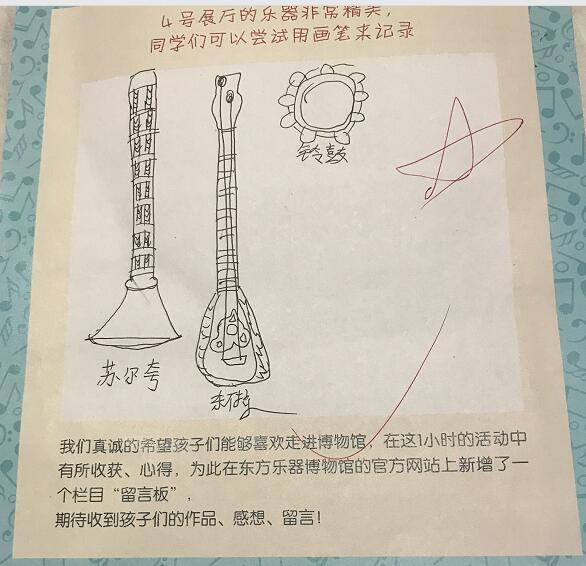 4号展厅的乐器非常精美，
同学们可以尝试用画笔来记录
铃鼓
苏尔夸
我们真诚的希望孩子们能够喜欢走进博物馆，在这1小时的活动中
有所收获、心得，为此在东方乐器博物馆的官方网站上新增了一
个栏目“留言板”，
期待收到孩子们的作品、感想、留言！